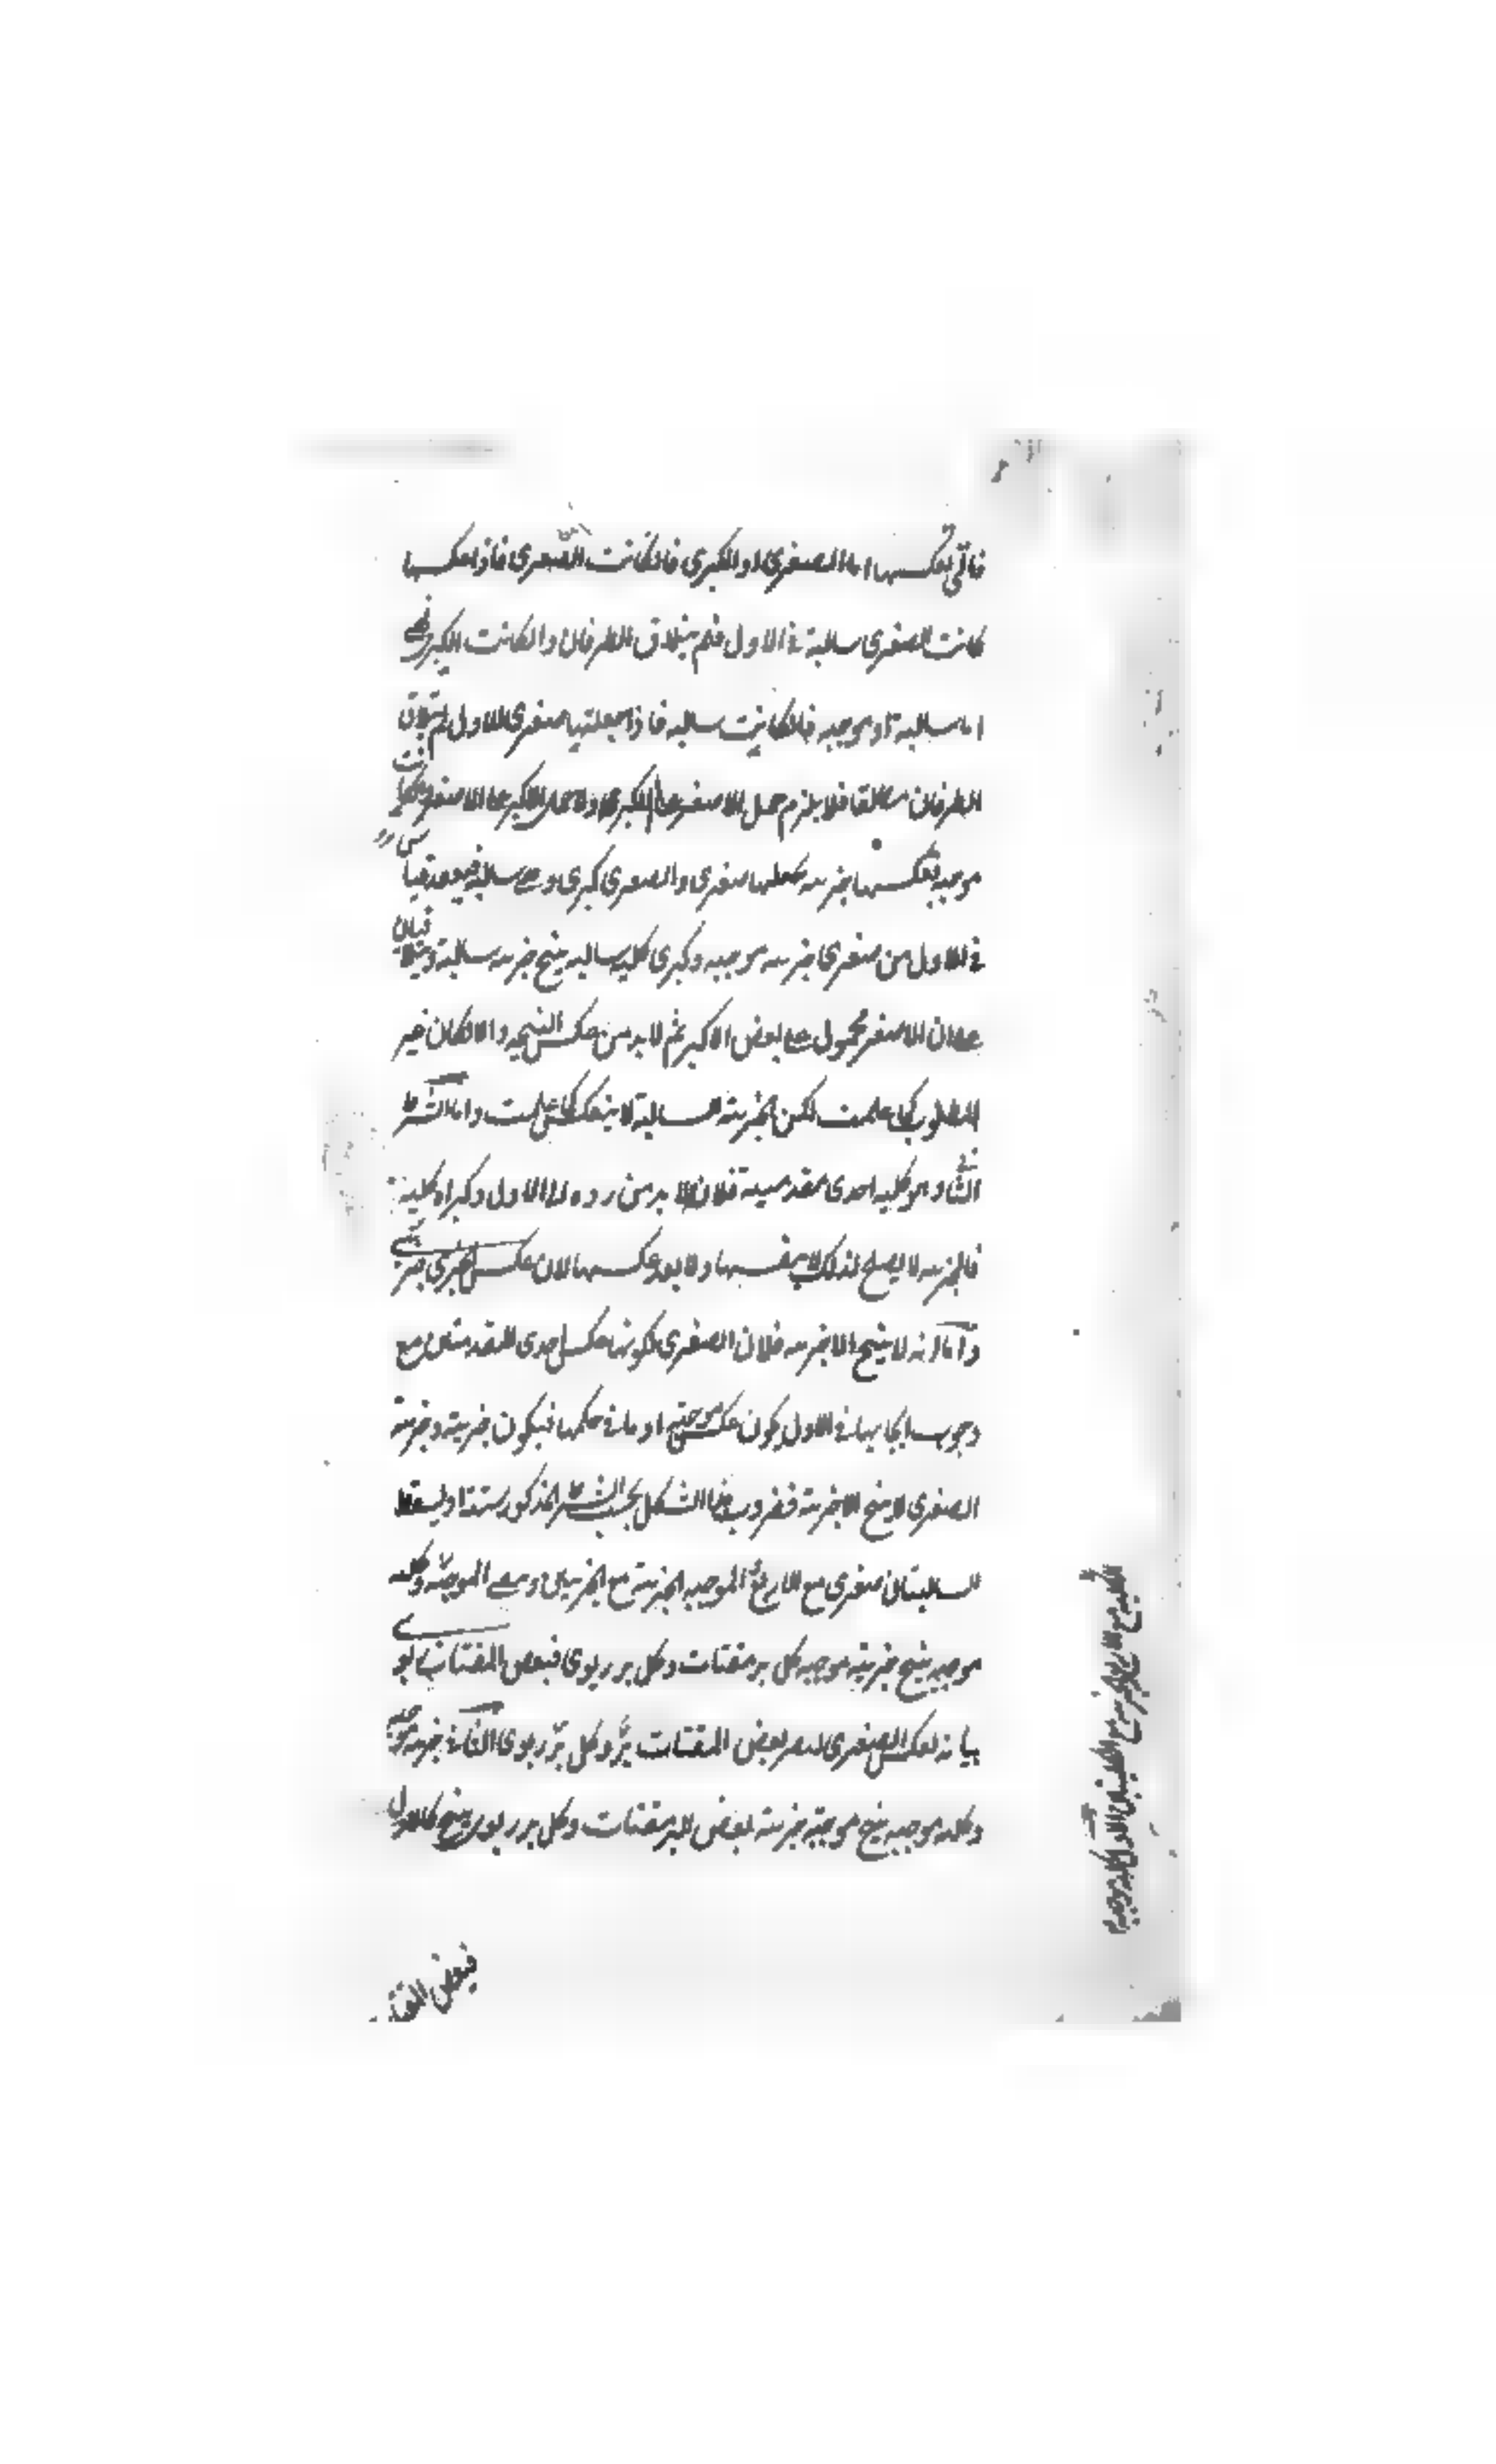 فالتي تعكسها اما الصغرى او الكبرى فان كانت الصغرى فاذا عكسها
كانت الصغرى سالبة في الاول فلم يتلاق الطرفان وان كانت الكبرى فهي
اما سالبة او موجبه فان كانت سالبه فاذا جعلتها صغرى الاول لم يتلاق
الطرفان مطلقا فلا يلزم حمل الاصغر على الكبرى ولا حمل الاكبر على الاصغر وان كانت
موجبه فعكسها جزئيه تجعلها صغرى والصغرى كبرى وهي سالبة فينعقد قياس
في الاول من صغرى جزئيه موجبه وكبرى كليه سالبه ينتج جزئيه سالبة ويتلاقيان
على ان الاصغر محمول على بعض الاكبر ثم لا بد من عكس النتيجه والا لكان غير
المطلوب كما علمت لكن الجزئية السالبة لا ينعكس كما علمت واما الشرط
الثاني وهو كليه احدى مقدمتيه فلانه لا بد من رده الى الاول وكبراه كلية
فالجزئيه لا يصلح لذلك بنفسها ولا بعد عكسها لان عكس الجزئي جزئي
واما انه لا ينتج الا جزئيه فلان الصغرى لكونها عكس احدى المقدمتين مع
وجوب ايجابها في الاول يكون عكس موجبة او ما في حكمها فيكون جزئية وجزئية
الصغرى لا ينتج الا جزئية فضروب هذا الشكل بحسب الشرط المذكور ستة اذ يسقط
السالبتان صغرى مع الاربع والموجبه الجزئية مع الجزئيتين وهي الموجبة وكليه
موجبه ينتج جزئية موجبه كل بر مقتات وكل بر ربوى فبعض المقتات ربو
بيانه بعكس الصغرى ليصير بعض المقتات بر وكل بر ربوى الثاني جزئية موجبة
وكليه موجبه ينتج موجبة جزئية بعض البر مقتات وكل بر ربوى ينتج كالاول
فبعض المقتا